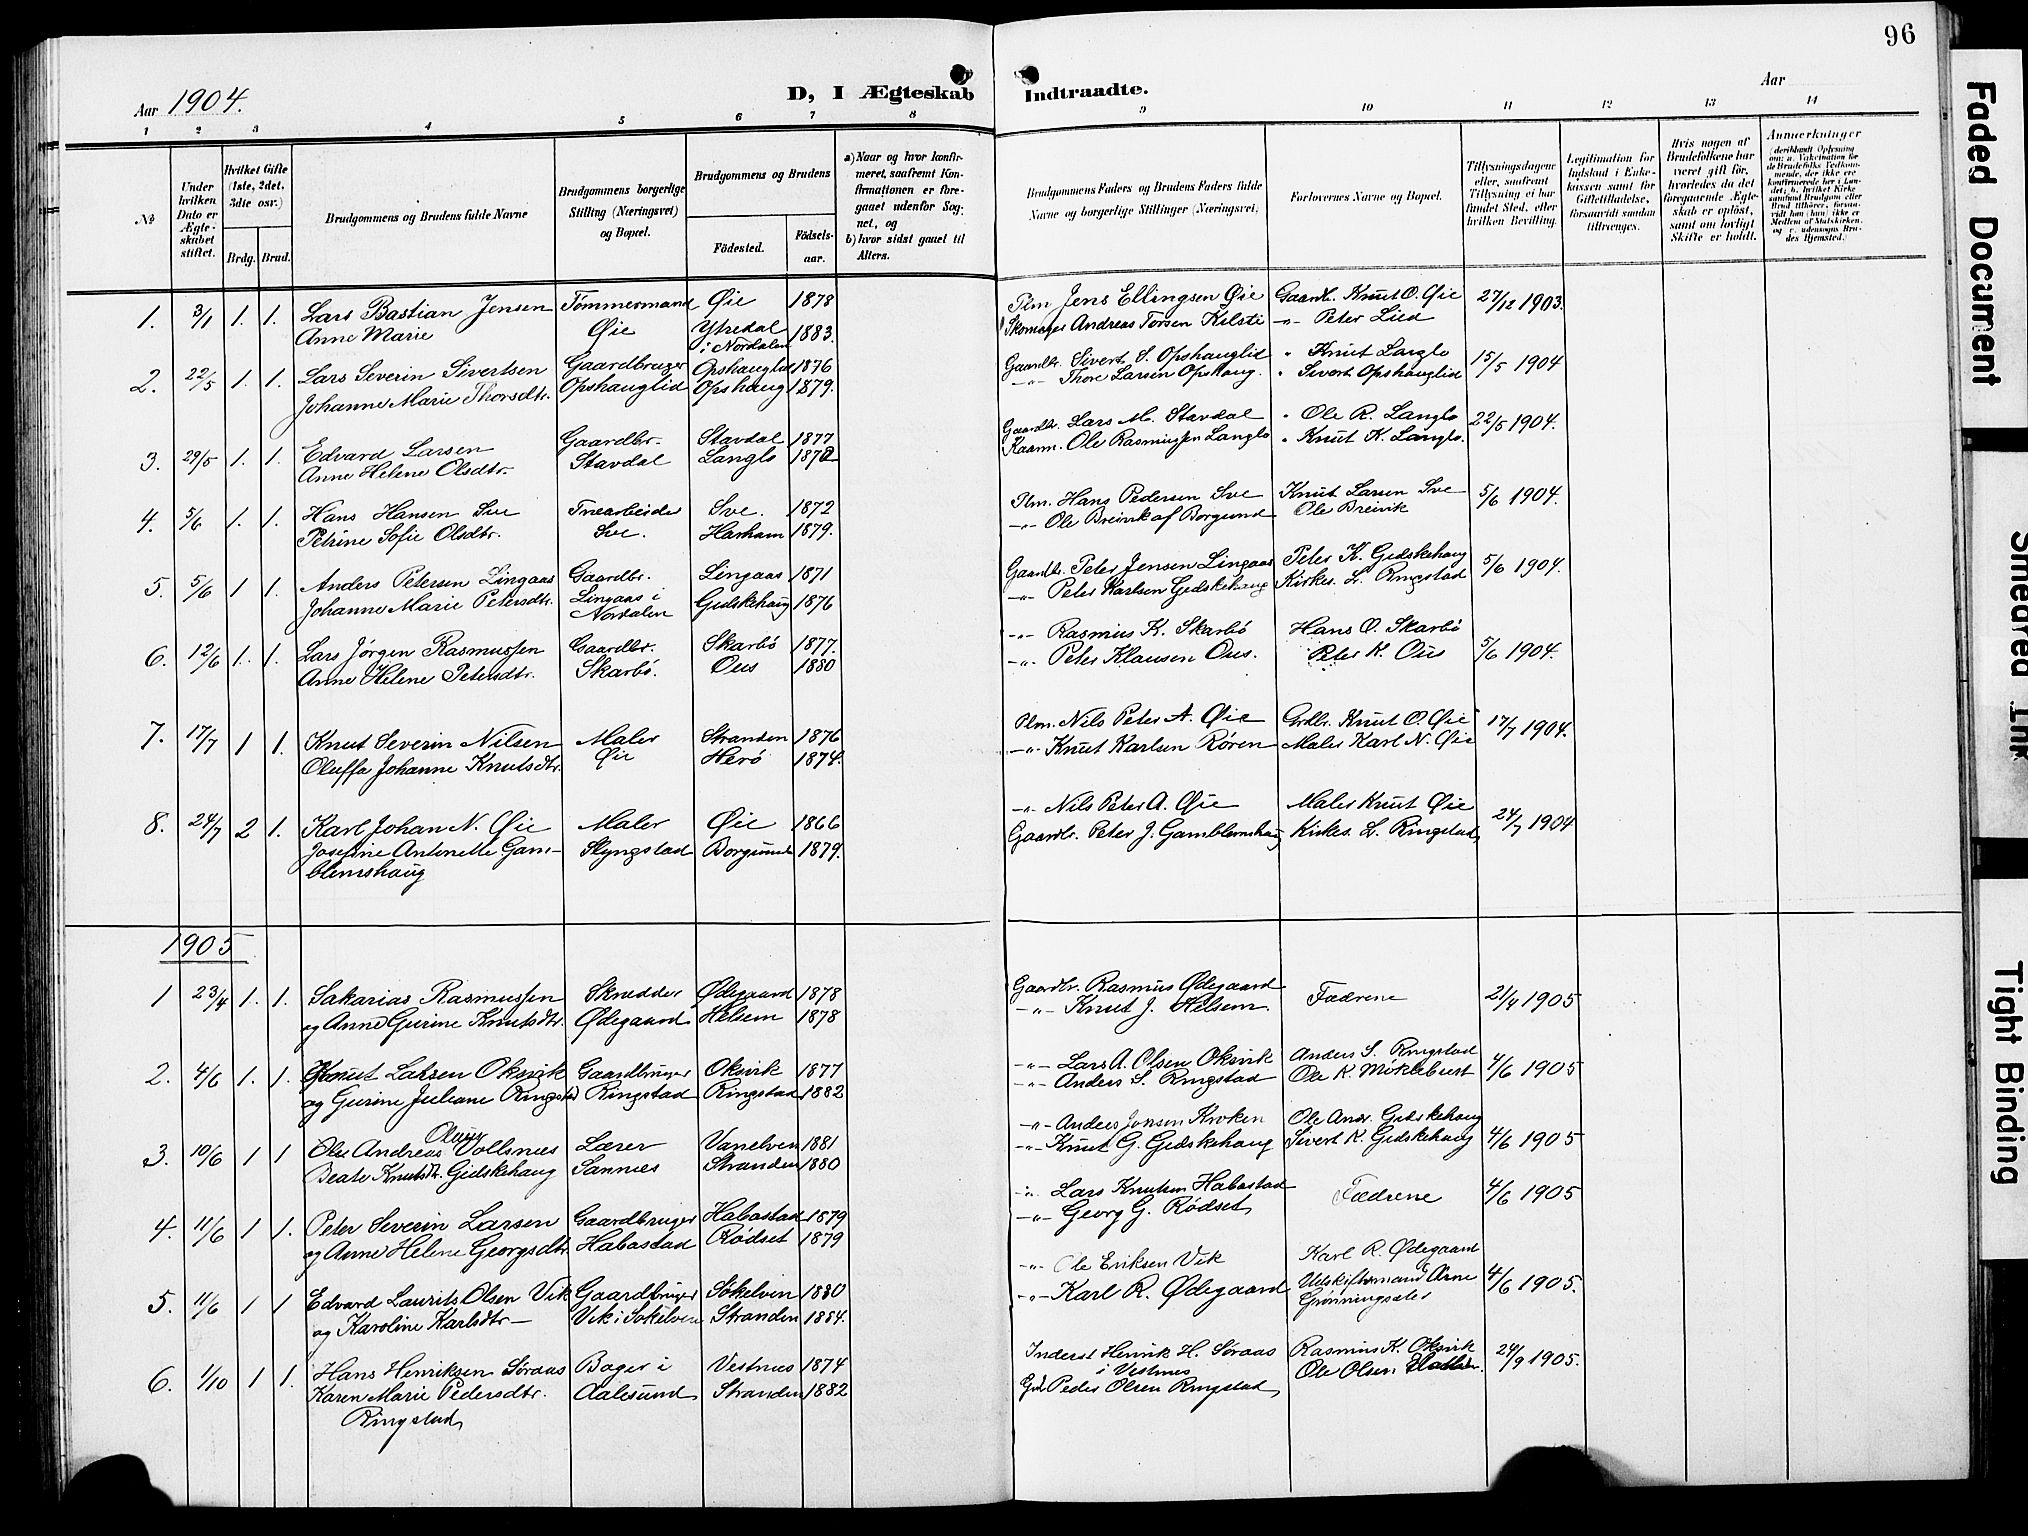 96
Aar 1904.
D, I Ægteskab Indtraadte.
Aar
1 2 3 4 5 6 7 8 9 10 11 12 13 14
No
Under hvilken Dato er Ægteskabet stiftet.
Hvilket Gifte (1ste, 2det, 3die osv.)
Brdg. Brud.
Brudgommens og Brudens fulde Navne
Brudgommens borgerlige Stilling (Næringsvei) og Bopæl.
Brudgommens og Brudens
Födested. Födselsaar.
a) Naar og hvor konfirmeret, saafremt Konfirmationen er foregaaet udenfor Sognet, og
b) hvor sidst gaaet til Alters.
Brudgommens Faders og Brudens Faders fulde Navne og borgerlige Stillinger (Næringsvei)
Forlovernes Navne og Bopæl.
Tillysningsdagene eller, saafremt Tillysning ei har fundet Sted, efter hvilken Bevilling.
Legitimation for Indskud i Enkekassen samt for Giftetilladelse, forsaavidt saadan tiltrænges.
Hvis nogen af Brudefolkene har været gift för, hvorledes da det foregaaende Ægteskab er oplöst, samt om lovligt Skifte er holdt.
Anmerkninger
1. 3/1 1. 1. Lars Bastian Jensen Tømmermand Øie 1878 Plm Jens Ellingsen Øie Gaardb. Knut O. Øie 27/12 1903.
Anne Marie Øie Ytredal i Nordalen 1883. Skomager Andreas Torsen Kilsti -"- Peter Lied
2. 22/5 1. 1. Lars Severin Sivertsen Gaardbruger Opshauglid 1876 Gaardbr. Sivert S. Opshauglid " Knut Langlo 15/5 1904
Johanne Marie Thorsdtr. Opshauglid Opshaug 1879. -"- Thore Larsen Opshaug. " Sivert Opshauglid
3. 29/5 1. 1. Edvard Larsen Gaardbr. Stavdal 1877 Gaardbr. Lars M. Stavdal " Ole R. Langlo 22/5 1904.
Anne Helene Olsdtr. Stavdal Langlo Kaarm. Ole Rasmussen Langlo " Knut K. Langlo.
4. 5/6 1. 1. Hans Hansen Sve Træarbeider Sve. 1872 Plm. Hans Pedersen Sve Knut Larsen Sve 5/6 1904.
Petrine Sofie Olsdtr. Sve. Harham 1879. -"- Ole Breivik af Borgund Ole Breivik
5. 5/6 1 1. Anders Petersen Lingaas Gaardbr. Lingaas 1871 Gaardbr. Peter Jensen Lingaas Peter K. Gidskehaug 5/6 1904.
Johanne Marie Petersdtr. Lingaas i Nordalen Gidskehaug 1876 -"- Peter Karlsen Gidskehaug Kirkes. L. Ringstad
6. 12/6 1. 1. Lars Jørgen Rasmussen Gaardbr. Skarbø 1877. -"- Rasmus K. Skarbø Hans O. Skarbø 5/6 1904.
Anne Helene Petersdtr. Skarbø. Ous 1880 -"- Peter Klausen Ous. Peter K. Ous
7. 17/7 1 1. Knut Severin Nilsen Maler Stranden 1876 Plm. Nils Peter A. Øie Grdbr. Knut O. Øie 17/7 1904.
Oluffa Johanne Knutsdtr. Øie Herø 1874. -"- Knut Karlsen Røren Maler Karl N. Øie
8. 24/7 2 1. Karl Johan N. Øie Maler Øie 1866 -"- Nils Peter A. Øie Maler Knut Øie 24/7 1904
Josefine Antonette Gam- Slyngstad Borgund 1879. Gaardbr. Peter J. Gamblemshaug Kirkes. L. Ringstad
blemshaug
1905
1 23/4 1. 1. Sakarias Rasmussen Skrædder Ødegaard 1878 Gaardbr. Rasmus Ødegaard Fædrene 21/4 1905
og Anne Gurine Knutsdtr. Ødegaard Helsem 1878 -"- Knut J. Helsem.
2. 4/6 1. 1. Knut Larsen Oksvik Gaardbruger Oksvik 1877 -"- Lars A. Olsen Oksvik Anders S. Ringstad 4/6 1905
og Gurine Juliane Ringstad Ringstad Ringstad 1882 -"- Anders S. Ringstad Ole K. Miklebust
3. 10/6 1 1 Ole Andreas Vollsnes Lærer Vanelven 1881 -"- Anders Jonsen Kroken Ole Andr. Gidskehaug
Beate Knutsdtr. Gidskehaug Sannes Stranden 1880 -"- Knut G. Gidskehaug Sivert K. Gidskehaug 4/6 1905
4. 11/6 1 1. Peter Severin Larsen Gaardbruger Habostad 1879 -"- Lars Knutsen Habostad Fædrene 4/6 1905
og Anne Helene Georgsdtr. Habostad Rødset 1879 -"- Georg G. Rødset
5. 11/6 1 1 Edvard Laurits Olsen Vik Gaardbruger Søkelven 1880 -"- Ole Eriksen Vik Karl R. Ødegaard 4/6 1905.
og Karoline Karlsdtr- Vik i Søkelven Stranden 1884. -"- Karl R. Ødegaard Udskiftsmand Arne Grønningsæter
6. 1/10 1 1. Hans Henriksen Søraas Bager i Vestnes 1874 Inderst Henrik H. Søraas i Vestnes Rasmus K. Oksvik 24/9 1905.
Karen Marie Pedersdtr. Aalesund Stranden 1882 Peder Olsen Ringstad Ole Olsen
Ringstad
Faded Document
Smeared Ink
Tight Binding